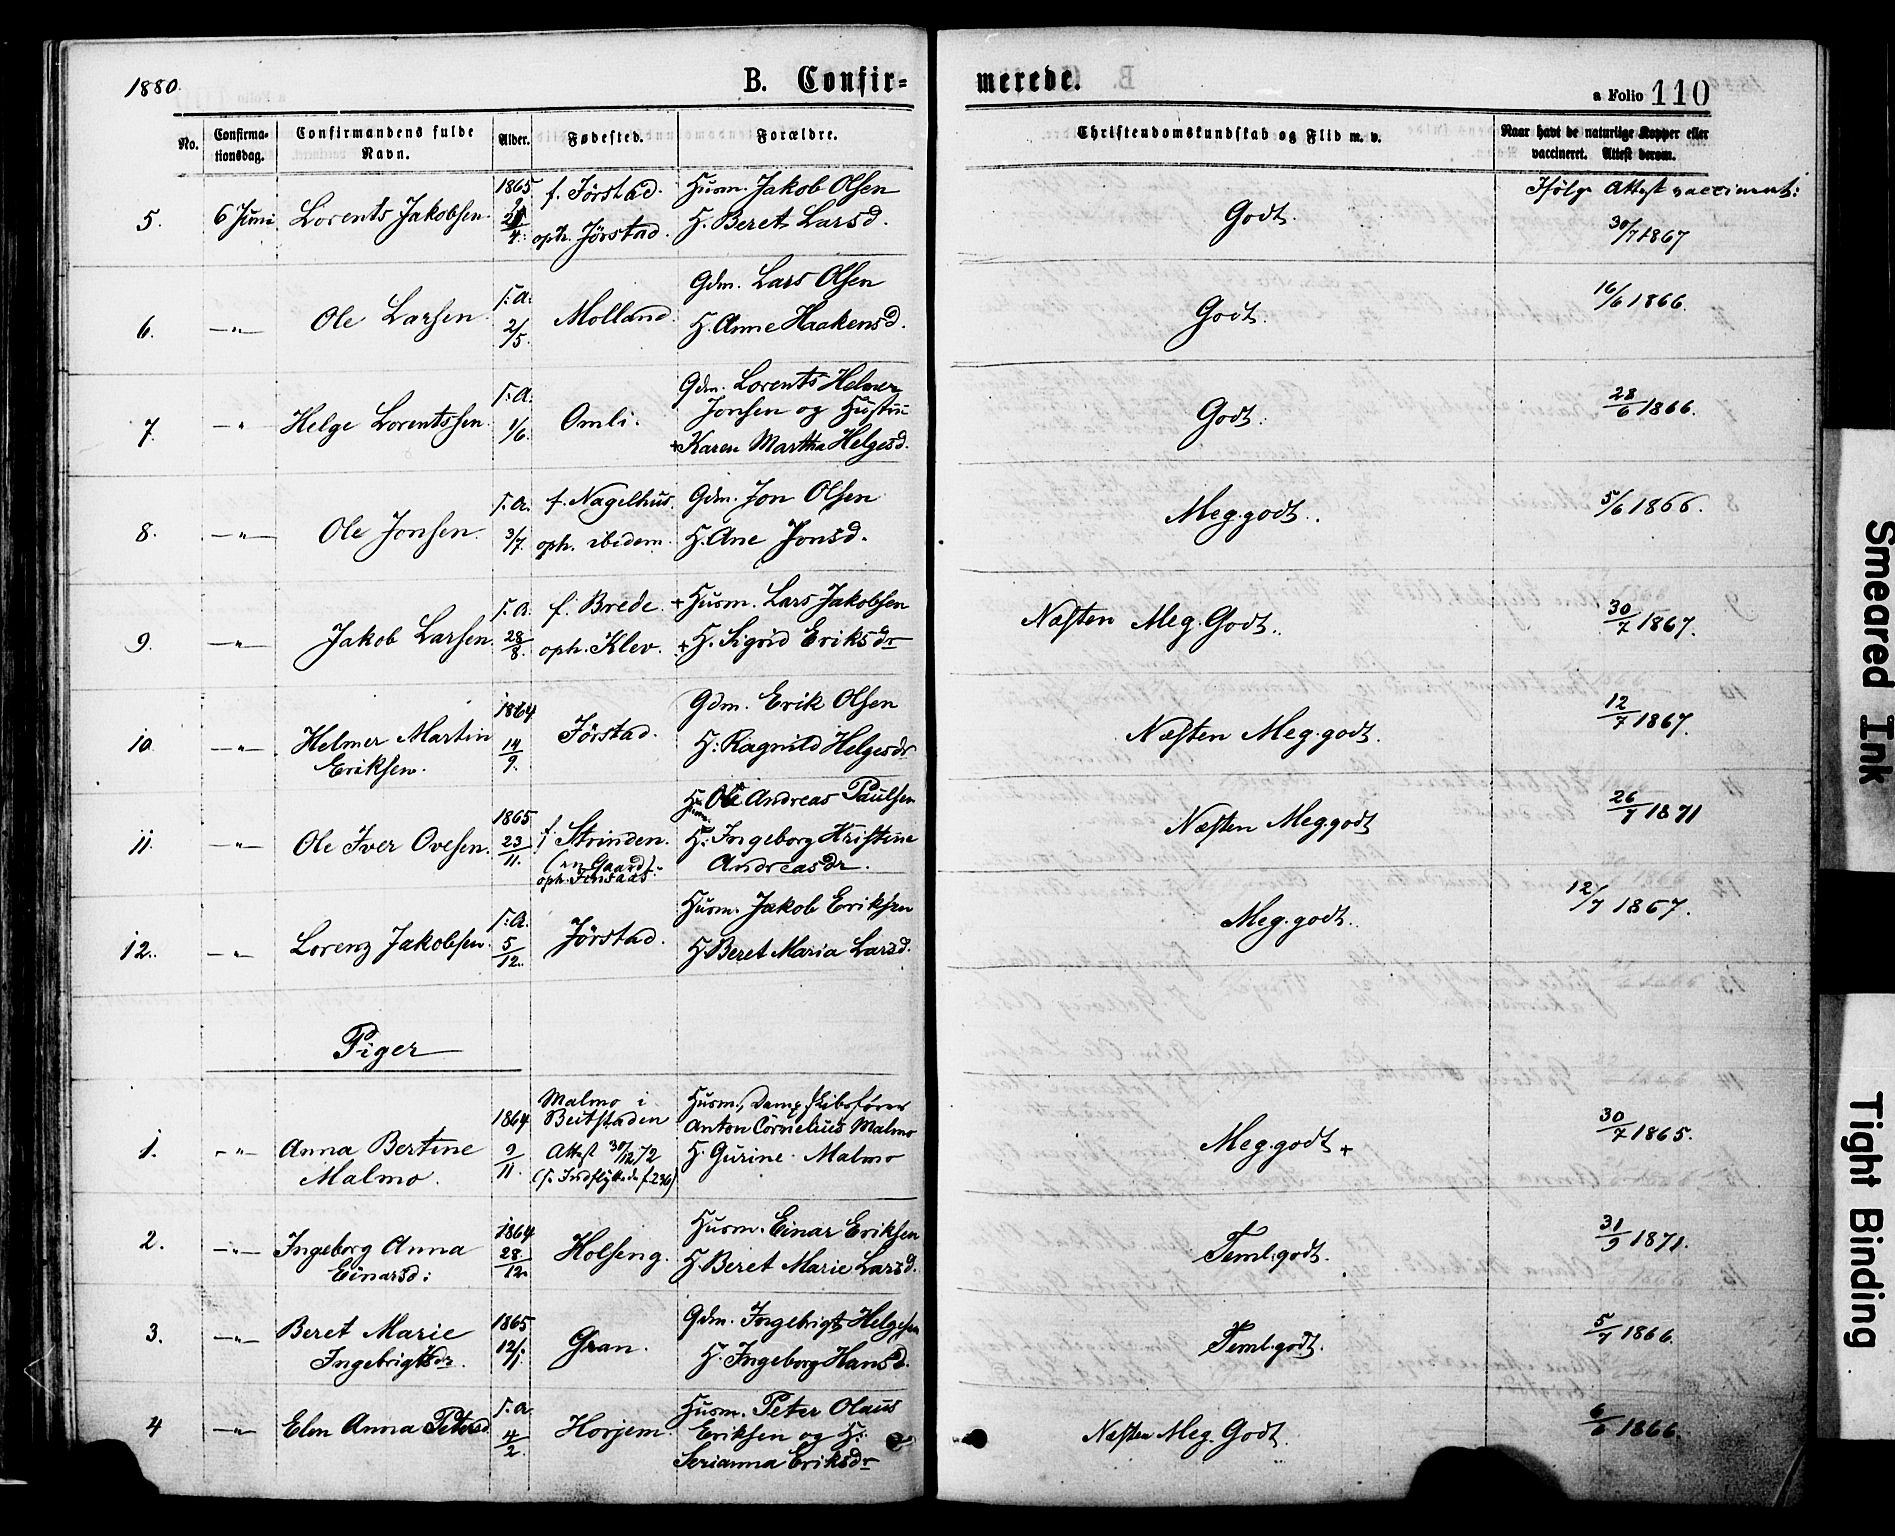 1880.
B. Confir=
merede.
a Folio 110
No.
Confirma-
tionsdag.
Confirmandens fulde
Navn.
Alder.
Fødested.
Forældre.
Christendomskundskab og Flid m. v.
Naar havt de naturlige Kopper eller
vaccineret. Attest derom.
5. 6 Juni Lorents Jakobsen 1865 f. Jörstad. Husm. Jakob Olsen Godt. Ifölge Attest vaccineret:
4. oph. Jörstad. H. Beret Larsd. 30/7 1867
6. —"— Ole Larsen s. A. 2/5. Molland. Gdm. Lars Olsen Godt. 16/6 1866.
H. Anne Haakensd.
7. —"— Helge Lorentssen. s. A. 1/6. Omli. Gdm. Lorents Helmer Godt. 28/6 1866.
Jonsen og Hustru
+ Karen Martha Helgesd.
8. —"— Ole Jonsen. s. a. 3/7. f. Nagelhus. Gdm. Jon Olsen Meg. godt. 5/6 1866.
oph. ibidem. H. Ane Jonsd.
9. —"— Jakob Larsen s. a. 28/8. f. Brede. + Husm. Lars Jakobsen Næsten Meg. Godt. 30/7 1867.
oph. Klev. + H. Sigrid Eriksdr
10. —"— Helmer Martin 1864 14/9. Jörstad. Gdm. Erik Olsen Næsten Meg. godt. 12/7 1867.
Eriksen. H: Ragnild Helgesdr
11. —"— Ole Iver Ovesen. 1865 23/11. f. Strinden. Andreas Paulsen Næsten Meg. godt 26/7 1871
H: Ingeborg Kristine
oph. Andreasdr.
12. —"— Lorenz Jakobsen. s. A. 5/12. Jörstad. Husm. Jakob Eriksen Meg. godt. 12/7 1867.
H. Beret Maria Larsd.
Piger
1. —"— Anna Bertine 1864 9/11. Malmo i Husm., Dampskibsförer Meg. godt + 30/7 1865.
Malmo. Beitstaden Anton Cornelius Malmo
Attest 30/12 72 H. Gurine Malmo
2. —"— Ingeborg Anna 1864 28/12. Holseng. Husm. Einar Eriksen Teml. godt. 31/9 1871.
Einarsd: H. Beret Marie Larsd.
3. —"— Beret Marie 1865 12/1. Gran. Gdm. Ingebrigt Helgesen Teml. godt. 5/7 1866.
Ingebrigtsdr. H. Ingeborg Hansd.
4 —"— Elen Anna Petersd. s. a. 4/2 Horjem. Husm. Peter Olaus Næsten Meg. Godt. 6/6 1866.
Eriksen og H:
Serianna Eriksdr
Smeared Ink
Tight Binding